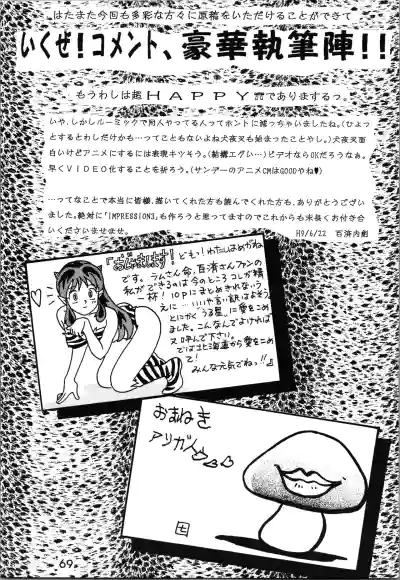 はたまた今回も多彩な方々に原稿をいただけることができて
いくぜ！コメント、豪華執筆陣！！
もうわしは超HAPPYでありまするっ。
いや、しかしルーミックで同人やってる人ってホントに減っちゃいましたね。(ひょっ
とするとわしだけかも…ってこともないよね犬夜叉も始まったことやし。)犬夜叉面
白いけどアニメにするには表現キツそう。(結構エグい…)ビデオならOKだろうなぁ。
早くVIDEO化することを祈ろう。(サンデーのアニメCMはGOODやね♥)
…ってなことで本当に皆様、描いてくれた方も読んでくれた方も、ありがとうござい
ました。絶対に「IMPRESSION3」も作ろうと思ってますのでこれからも末長くお付き合
いくださいませませ。
H9/6/22 百済内創
『おじゃまします！』
どもっ！わたしはめがね
です。ラムさん命、百済さんファンの
私ができるのは今のところコレが精一
杯！10pにまとめきれない
えに…いいや言い訳はよそう。
とにかく「うる星」に愛をこめ
ました。こんなんでよければ
又呼んで下さい。
では北海道から愛をこめ
て！
みんな元気でねっ!!』
おまねき
アリガトー
69